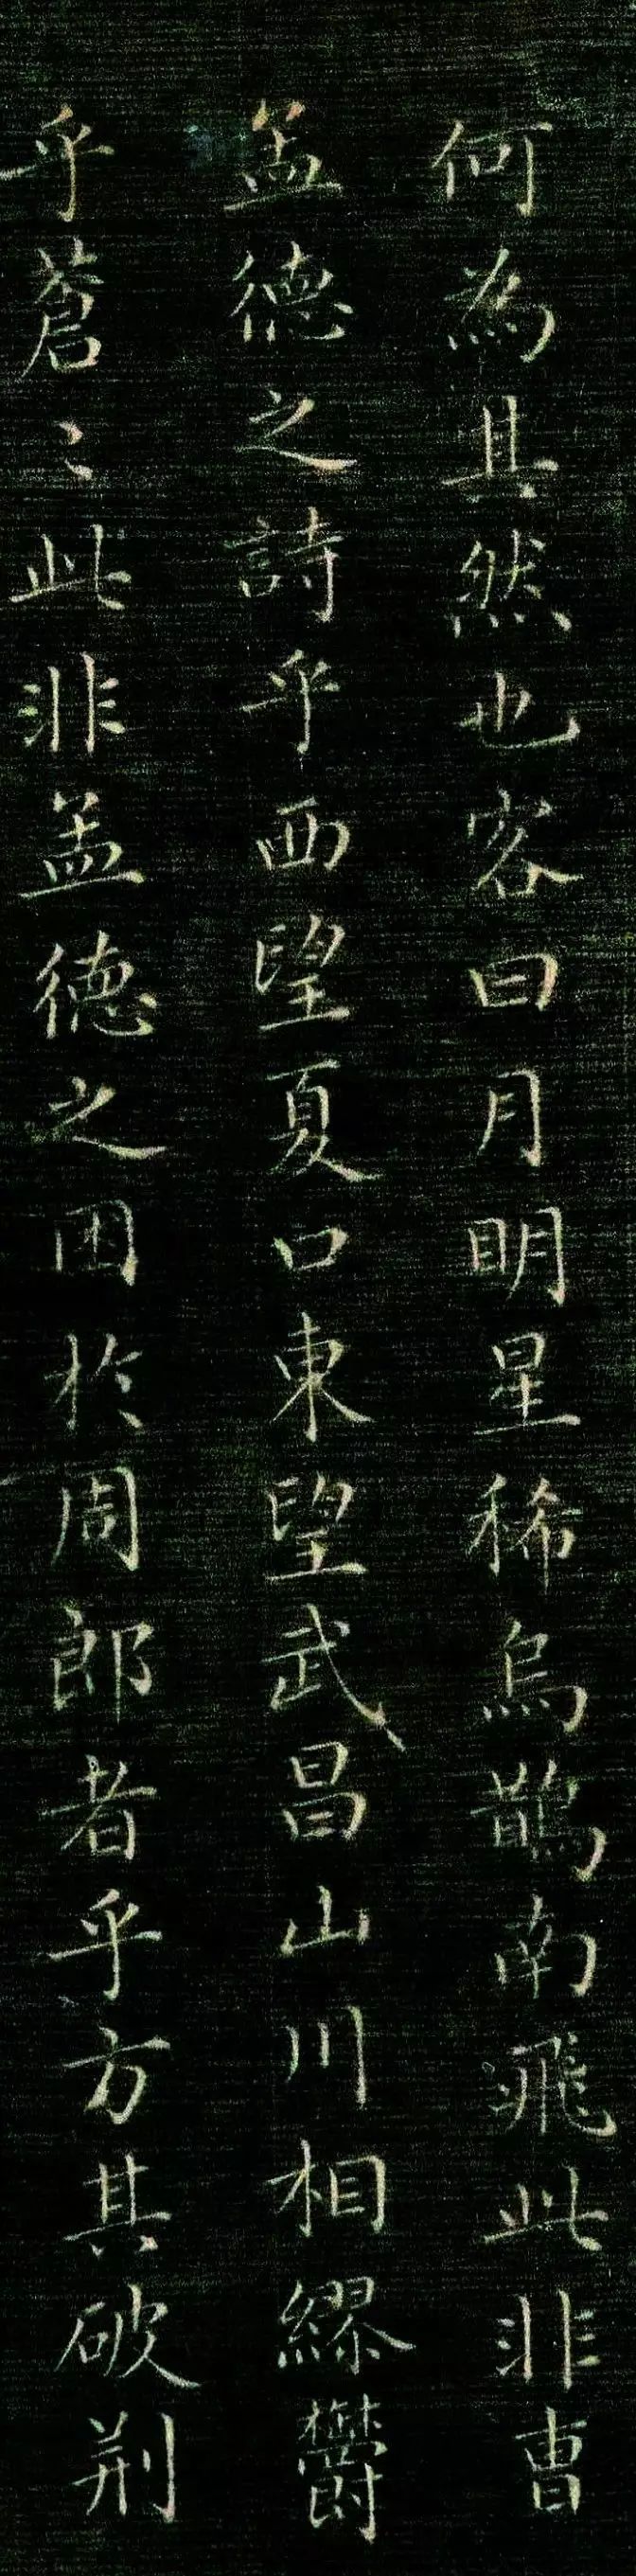 何為其然也客曰月明星稀烏鵲南飛此非曹
孟德之詩乎西望夏口東望武昌山川相繆鬱
乎蒼〻此非孟德之困於周郎者乎方其破荊